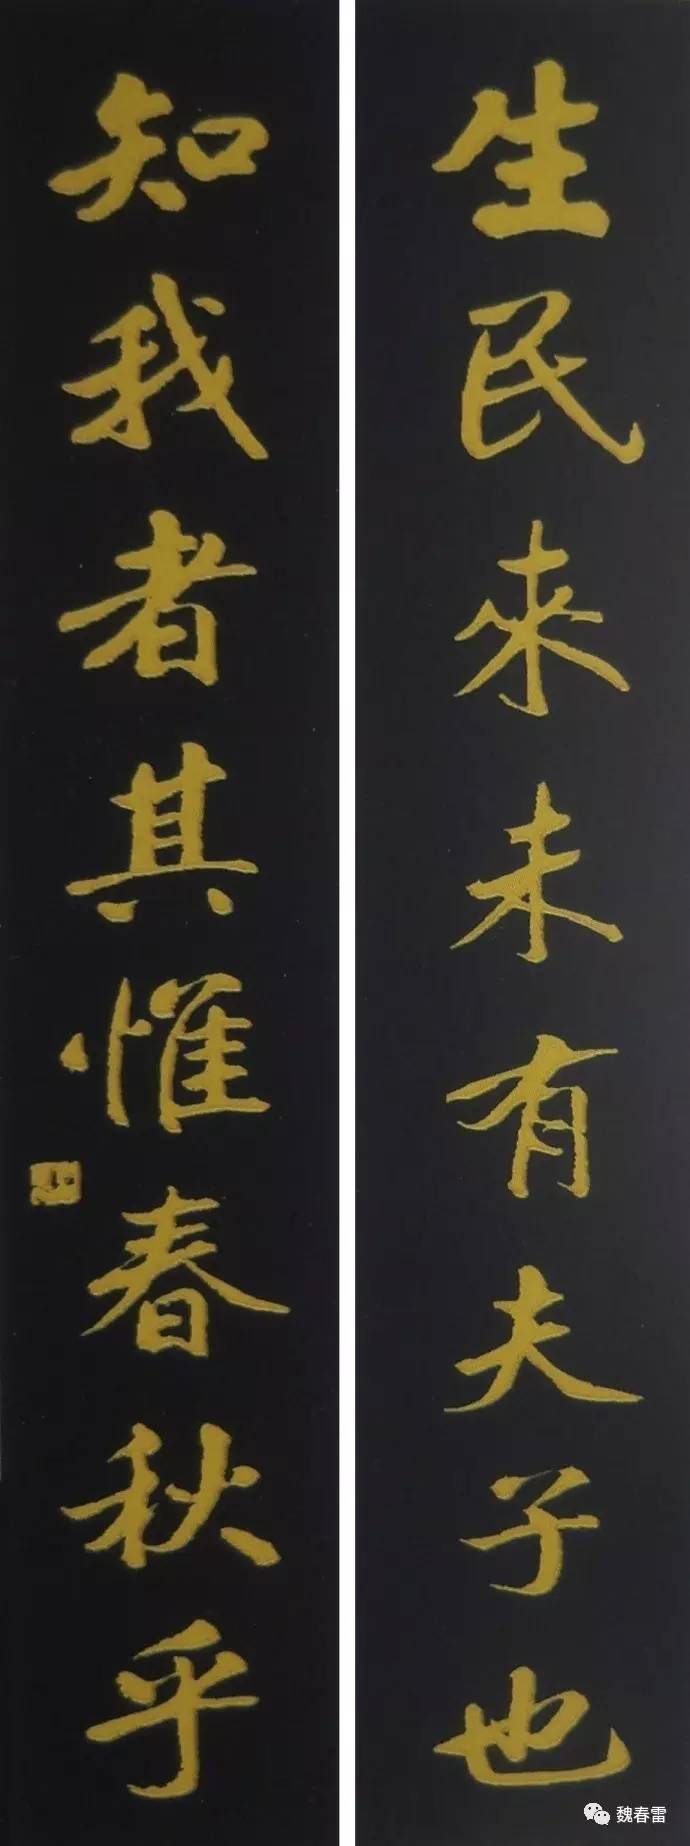 生民來未有夫子也
知我者其惟春秋乎
魏春雷